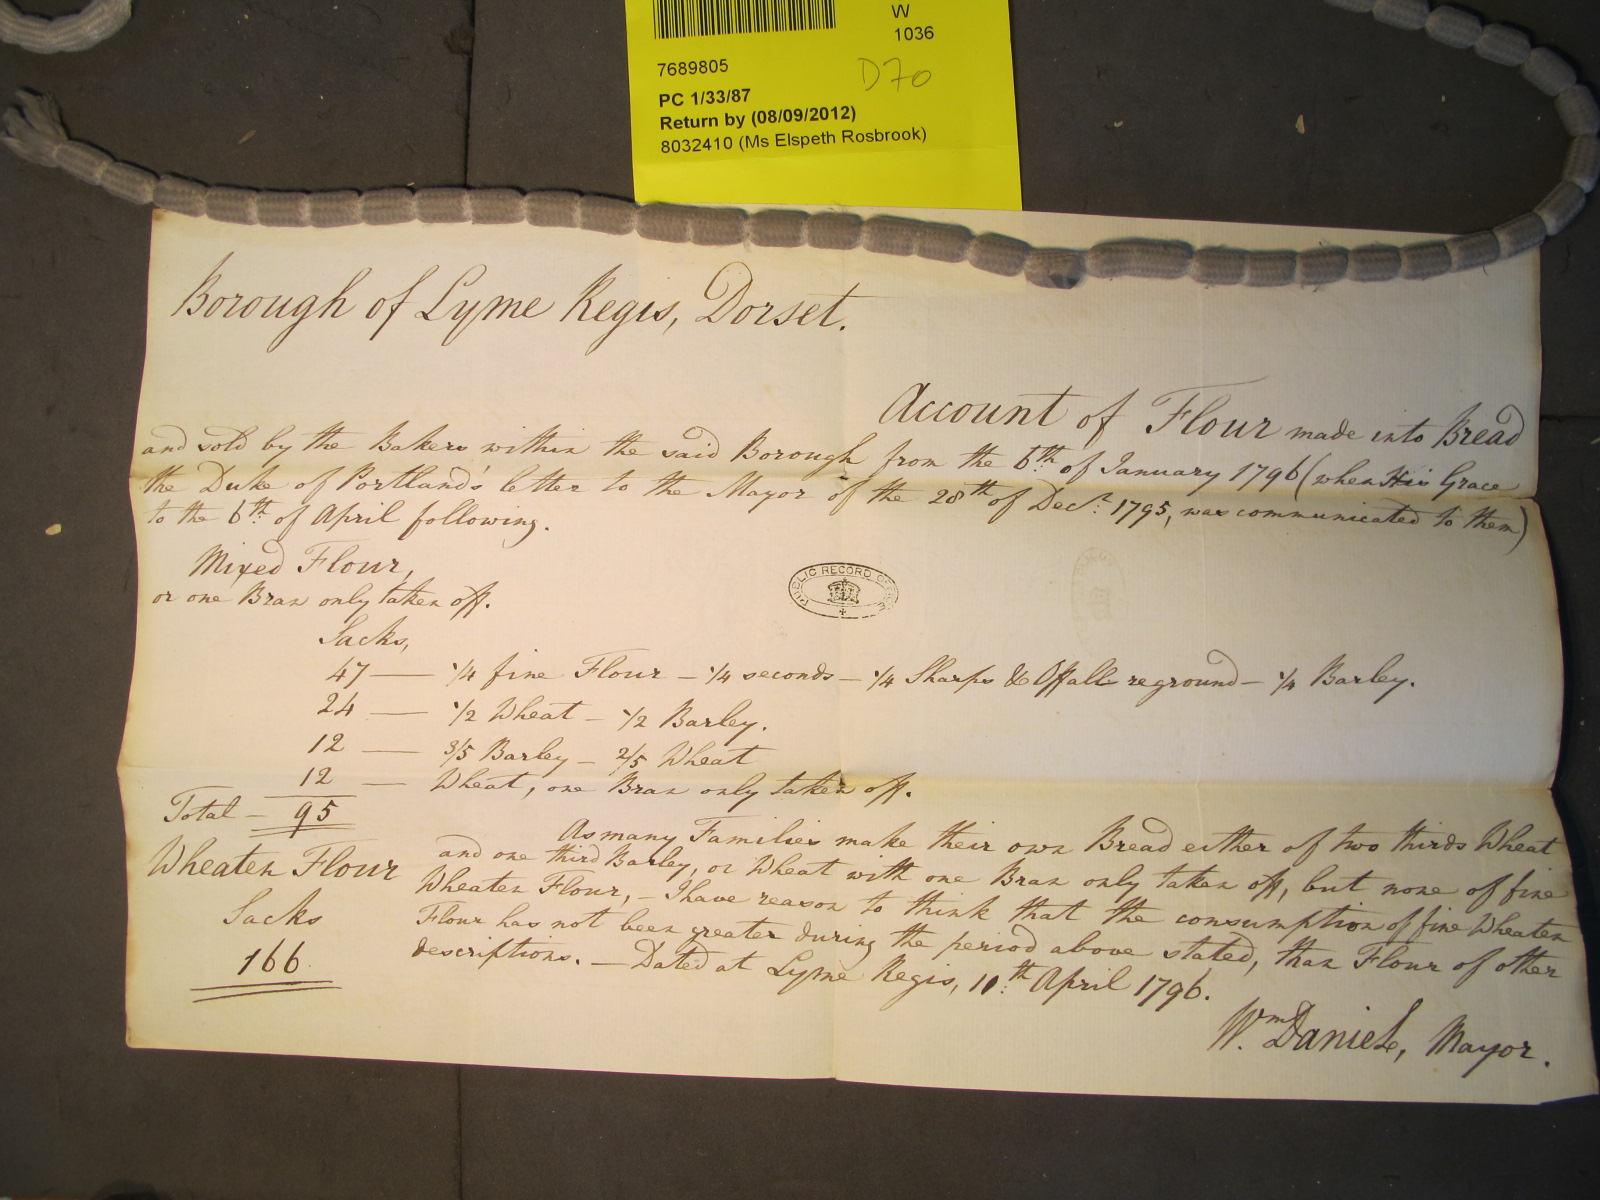 W
1036
7689805
D70
PC 1/33/87
Return by (08/09/2012)
8032410 (Ms Elspeth Rosbrook)
Borough of Lyme Regis, Dorset.
Account of Flour made into Bread
and sold by the Bakers within the said Borough from the 6th of January 1796 (when His Grace
the Duke of Portland's letter to the Mayor of the 28th of Decr. 1795, was communicated to them)
to the 6th of April following.
Mixed Flour,
or one Bran only taken off.
PUBLIC RECORD OFFICE
Sacks,
47 — 1/4 fine Flour — 1/4 seconds — 1/4 Sharps & Offall reground — 1/4 Barley.
24 — 1/2 Wheat — 1/2 Barley.
12 — 3/5 Barley — 2/5 Wheat
12 — Wheat, one Bran only taken off.
Total — 95
Wheaten Flour
Sacks
166
As many Families make their own Bread either of two thirds Wheat
and one third Barley, or Wheat with one Bran only taken off, but none of fine
Wheaten Flour, — I have reason to think that the consumption of fine Wheaten
Flour has not been greater during the period above stated, than Flour of other
descriptions. — Dated at Lyme Regis, 11th April 1796.
Wm. Daniel, Mayor.